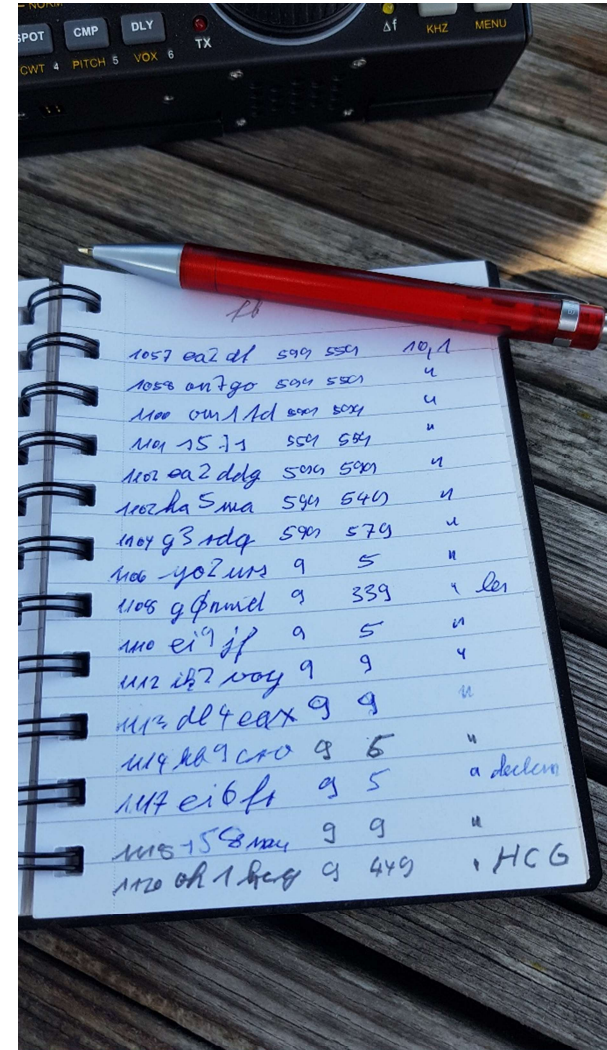 NORM
SPOT CMP DLY TX Δf KHZ MENU
CWT 4 PITCH 5 VOX 6
1057 ea2df 599 559 10,1
1058 on7go 599 559 "
1100 om11d 599 599 "
1101 s57s 559 559 "
1102 ea2ddg 599 599 "
1102 ha5ma 599 549 "
1104 g3rdq 599 579 "
1106 yo2urs 9 5 "
1108 gφnmd 9 339 " les
1110 ei9jf 9 5 "
1112 voy 9 9 "
1113 dl4eax 9 9 "
1114 hb9cro 9 5 "
1117 ei6fr 9 5 " declan
1118 9 9 "
1120 oh1hcg 9 449 " HCG